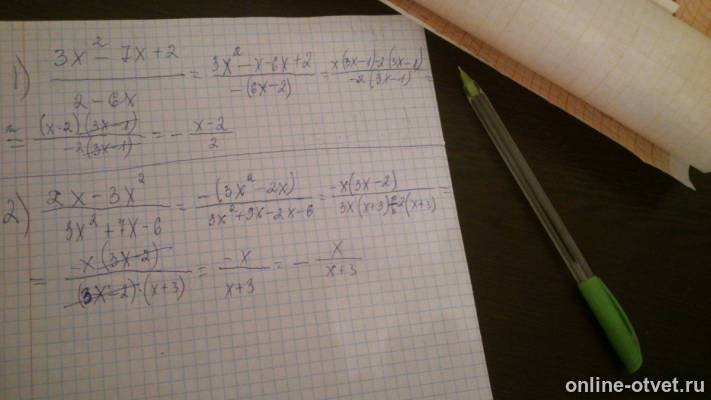 1) (3x² - 7x + 2)/(2 - 6x) = (3x² - x - 6x + 2)/(-(6x - 2)) = (x(3x - 1) - 2(3x - 1))/(-2(3x - 1)) =
= ((x - 2)(3x - 1))/(-2(3x - 1)) = - (x - 2)/2
2) (2x - 3x²)/(3x² + 7x - 6) = (-(3x² - 2x))/(3x² + 9x - 2x - 6) = (-x(3x - 2))/(3x(x + 3) - 2(x + 3)) =
= (-x(3x - 2))/((3x - 2)·(x + 3)) = (-x)/(x + 3) = - x/(x + 3)
online-otvet.ru